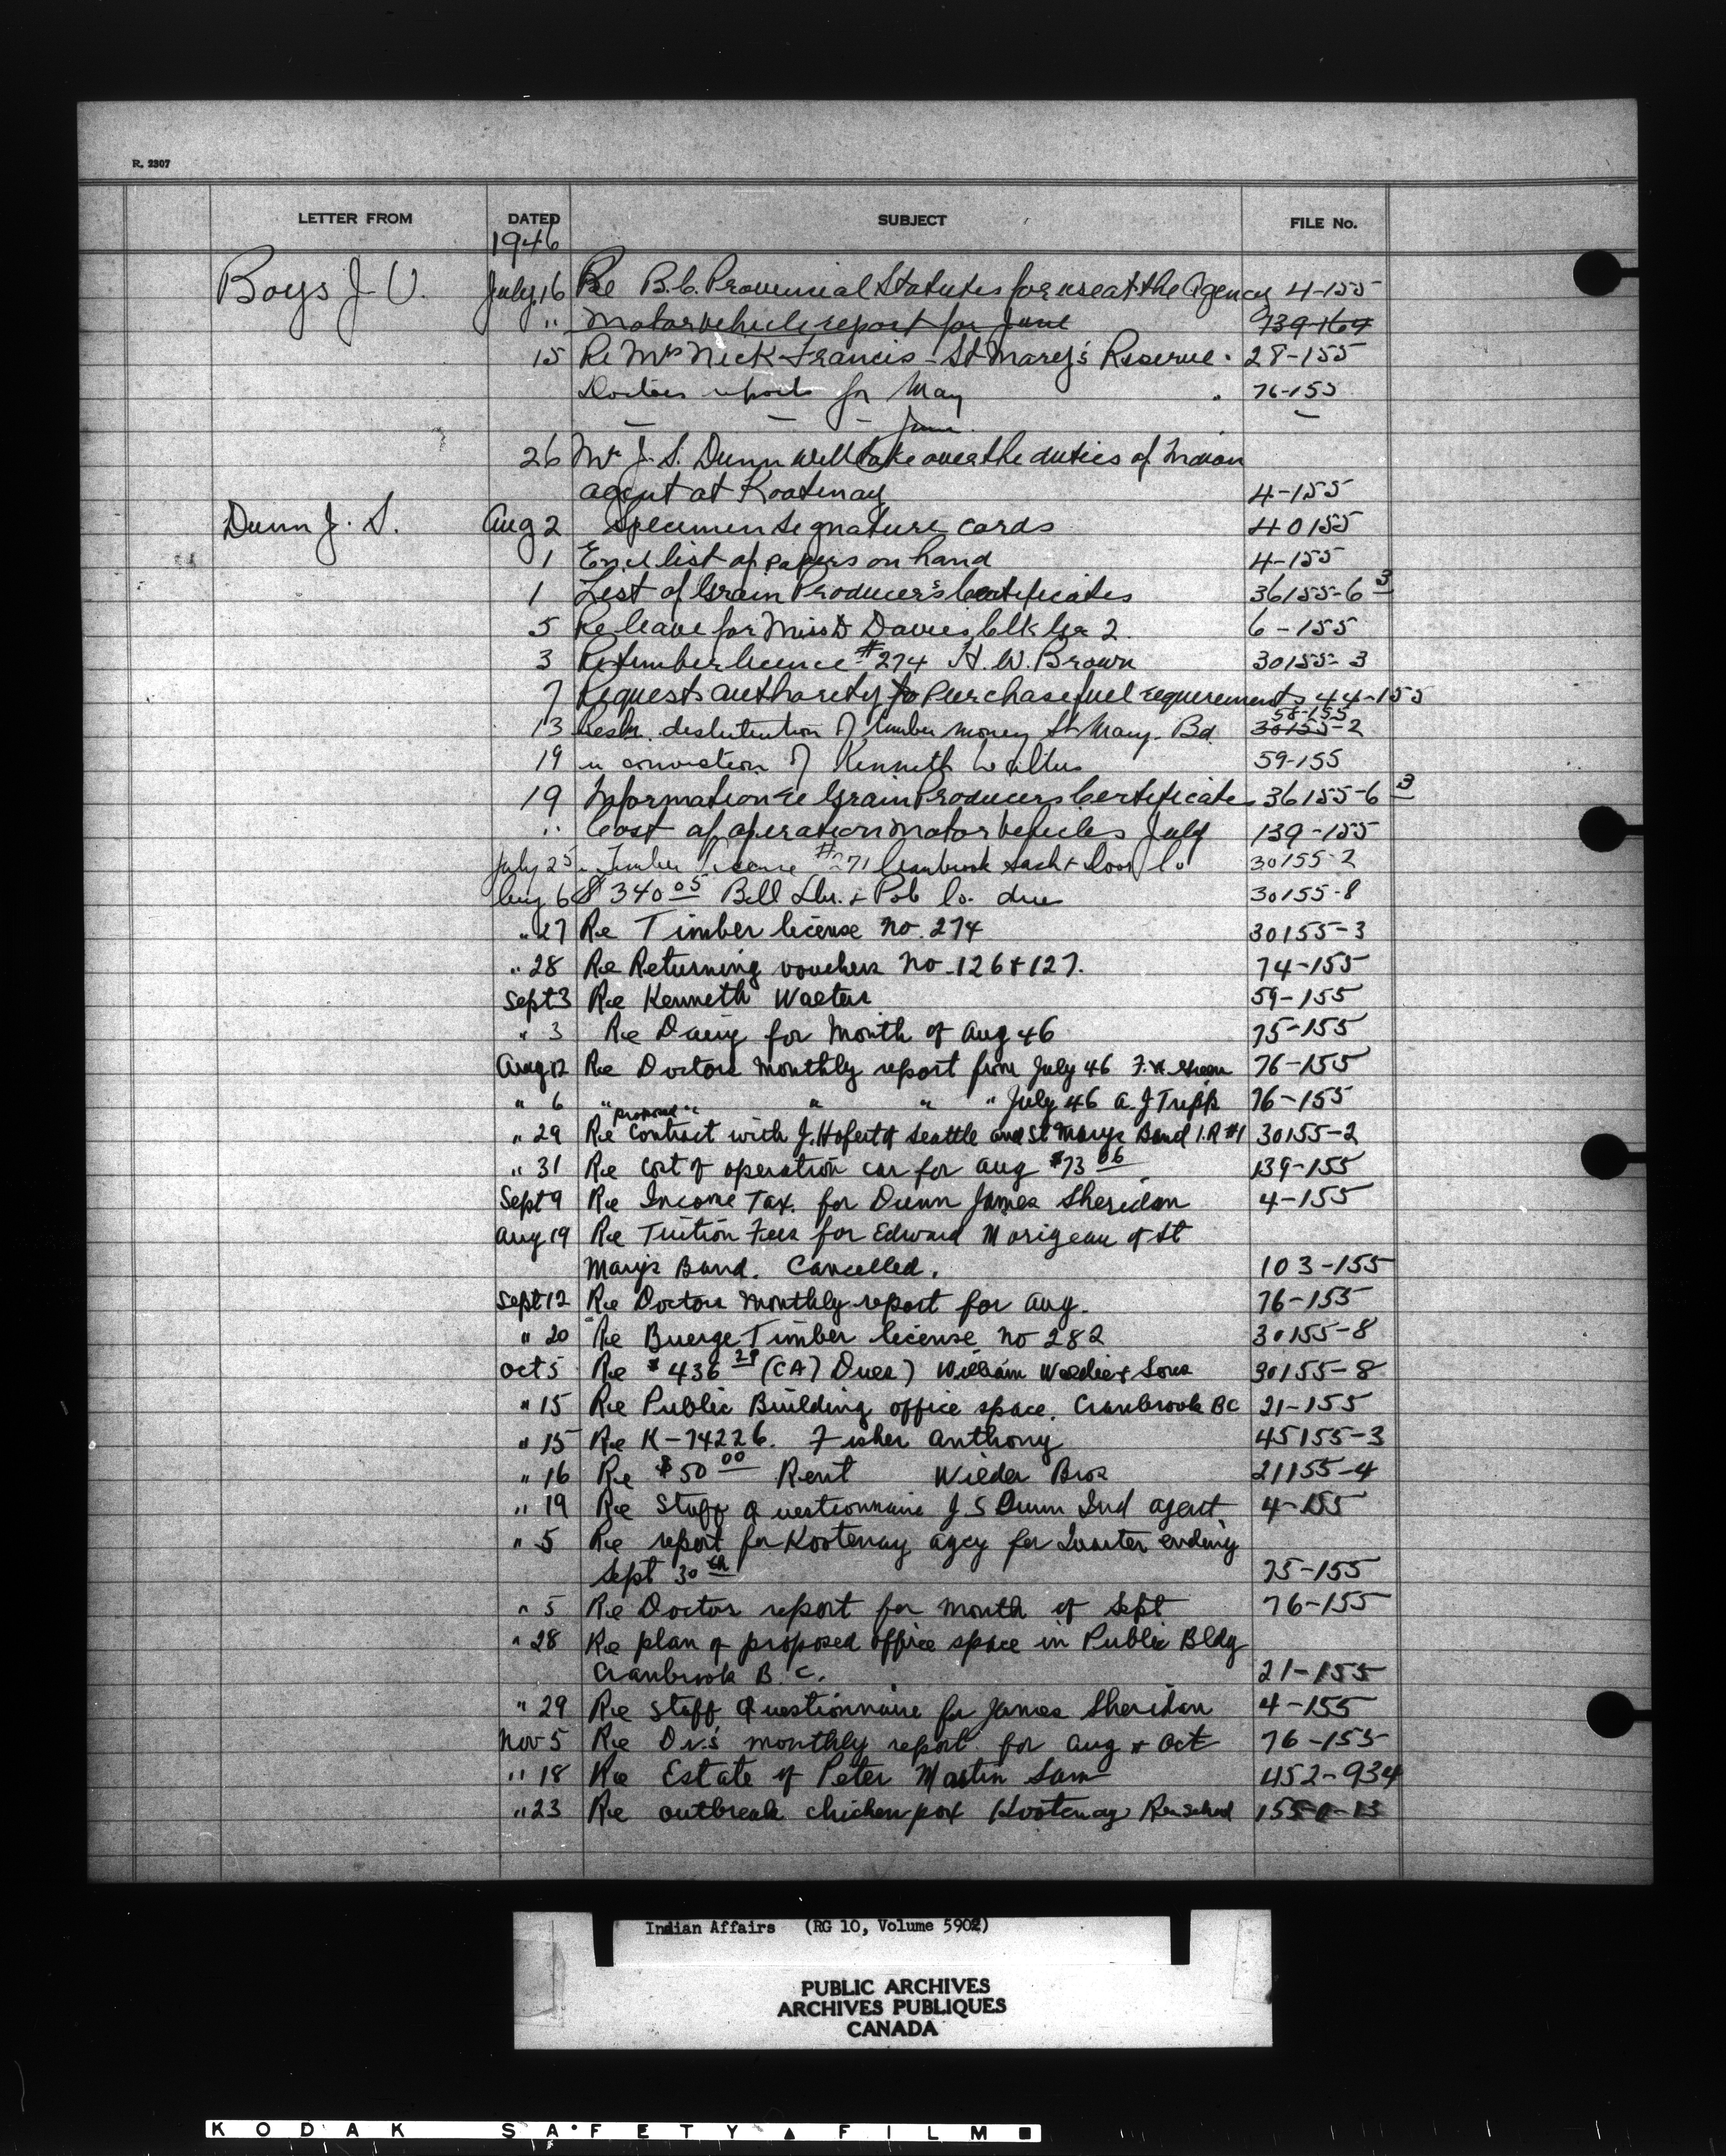 R. 2307
LETTER FROM DATED SUBJECT FILE No.
1946
Boys J. V. July 16 Re B.C. Provincial Statutes for use at the Agency 4-155
" Motor vehicle report for June 139-164
15 Re Mrs Nick Francis - St Mary's Reserve. 28-155
Doctors reports for May 76-155
— — June —
26 Mr J. S. Dunn will take over the duties of Indian
agent at Kootenay 4-155
Dunn J. S. Aug 2 Specimen signature cards 40155
1 Encl list of papers on hand 4-155
1 List of Grain Producer's Certificates 36155-6 3
5 Re leave for Miss D Davies, Clk Gr 2. 6-155
3 Re timber licence #274 H. W. Brown 30155-3
7 Requests authority to purchase fuel requirements 44-155
58-155
13 distribution of timber money St Mary. Bd. 30155-2
19 re conviction of Kenneth Walters 59-155
19 Information re Grain Producers Certificates 36155-6 3
" Cost of operation motor vehicles July 139-155
July 25 Timber license #271 Cranbrook Sash & Door Co 30155-2
Aug 6 $340 05 Bell Lbr. & Pole Co. due 30155-8
" 27 Re Timber license no. 274 30155-3
" 28 Re Returning vouchers no 126 & 127. 74-155
Sept 3 Re Kenneth Walters 59-155
" 3 Re Dairy for Month of Aug 46 75-155
Aug 12 Re Doctors Monthly report from July 46 F. W. Green 76-155
" 6 " " " " July 46 A. J Tripp 76-155
proposed
" 29 Re Contract with J. Hofert of Seattle and St Marys Band I.R #1 30155-2
" 31 Re Cost of operation car for Aug $73 06 139-155
Sept 9 Re Income Tax. for Dunn James Sheridan 4-155
Aug 19 Re Tuition Fees for Edward Morigeau of St
Marys Band. Cancelled. 103-155
Sept 12 Re Doctors Monthly report for Aug. 76-155
" 20 Re Buerge Timber license no 282 30155-8
Oct 5 Re $436 29 (CA7 Dues) William Waldie & Sons 30155-8
" 15 Re Public Building office space. Cranbrook BC 21-155
" 15 Re K-74226. Fisher Anthony 45155-3
" 16 Re $50 00 Rent Wilder Bros 21155-4
" 19 Re Staff Questionnaire J S Dunn Ind agent. 4-155
" 5 Re report for Kootenay agcy for Quarter ending
Sept 30 th 75-155
" 5 Re Doctor report for month of Sept 76-155
" 28 Re plan of proposed office space in Public Bldg
Cranbrook B. C. 21-155
" 29 Re Staff Questionnaire for James Sheridan 4-155
Nov 5 Re Dr.s monthly report for Aug & Oct 76-155
" 18 Re Estate of Peter Martin Sam 452-934
" 23 Re outbreak chicken pox Kootenay Res school
Indian Affairs (RG 10, Volume 5902)
PUBLIC ARCHIVES
ARCHIVES PUBLIQUES
CANADA
KODAK SAFETY FILM